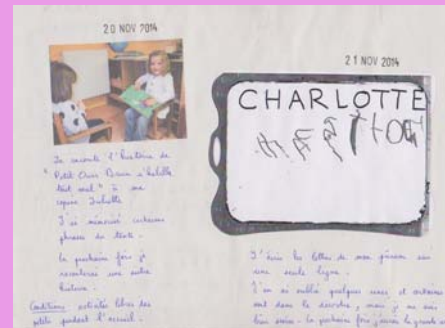 20 NOV 2014
Je raconte l'histoire de
"Petit Ours Brun s'habille
tout seul" à ma
copine Juliette
J'ai mémorisé certaines
phrases du texte.
La prochaine fois je
raconterai une autre
histoire.
Conditions activités libres des
petits pendant l'accueil.
21 NOV 2014
CHARLOTTE
J'écris les lettres de mon prénom sur
une seule ligne.
J'en ai oublié quelques unes et certaines
sont dans le désordre, mais je me suis
bien
La prochaine fois j'aurai la grande